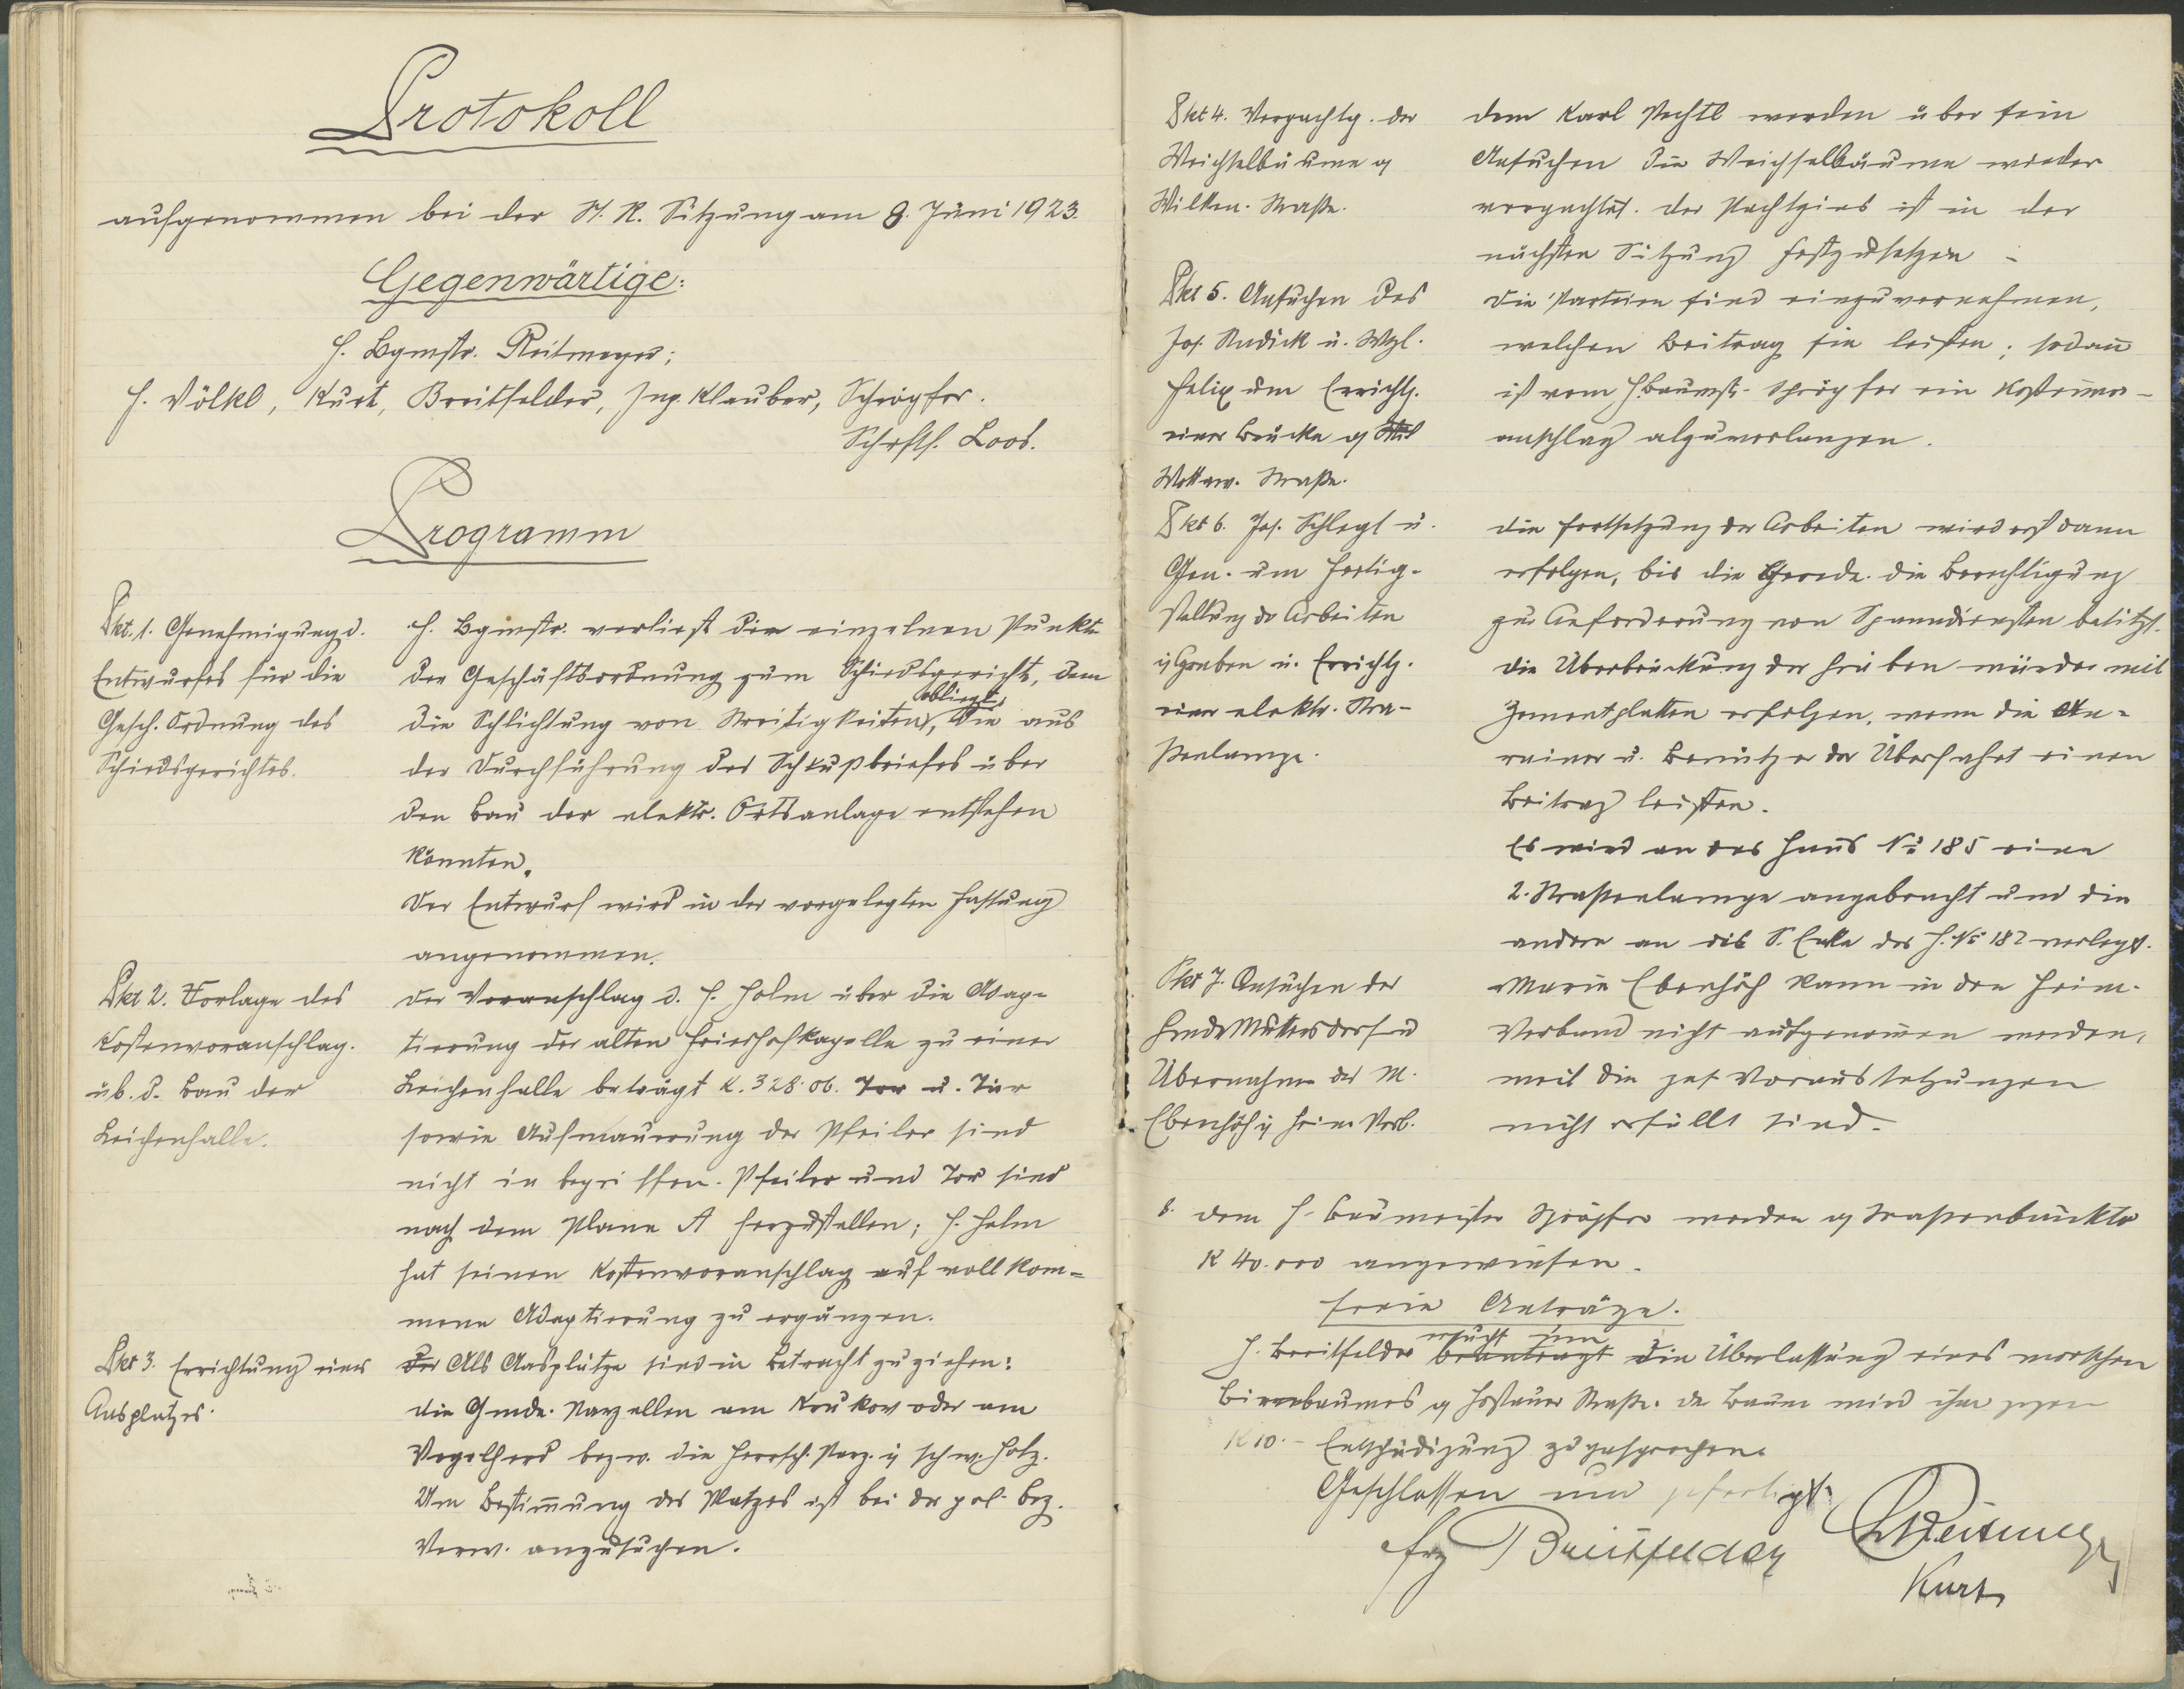 Protokoll
aufgenommen bei der St. R. Sitzung am 8. Juni 1923.
Gegenwärtige:
H. Bgmstr. Reitmeyer;
H. Völkl, Kurt, Breitfelder, Ing. Klauber, Schröpfer.
Schrftf. Loos.
Programm
Pkt. 1. Genehmigung d.
Entwurfes für die
Gesch. Ordnung des
Schiedsgerichtes.
H. Bgmstr. verliest die einzelnen Punkte
der Geschäftsordnung zum Schiedsgericht, dem
die Schlichtung von Streitigkeiten obliegt, die aus
der Durchführung des Schlußbriefes über
den Bau der elektr. Ortsanlage entstehen
könnten.
Der Entwurf wird in der vorgelegten Fassung
angenommen.
Pkt 2. Vorlage des
Kostenvoranschlag.
üb. d. Bau der
Leichenhalle.
Der Voranschlag d. H. Holm über die Adap-
tierung der alten Friedhofkapelle zu einer
Leichenhalle beträgt K. 328.06. Tor u. Tür
sowie Aufmauerung der Pfeiler sind
nicht inbegriffen. Pfeiler und Tor sind
nach dem Plane A herzustellen; H. Holm
hat seinen Kostenvoranschlag auf vollkom-
mene Adaptierung zu ergänzen.
Pkt 3. Errichtung eines
Aasplatzes.
Der Als Aasplätze sind in Betracht zu ziehen:
die Gmde. Parzellen am Krukow oder am
Vogelherd bezw. die Herrsch. Parz. ij schw. Holz.
Um Bestimmung des Platzes ist bei der pol. Bez.
Verw. anzusuchen.
Pkt 4. Verpachtg. der
Weichselbäume a/
Wilken. Straße.
Dem Karl Pechtl werden über sein
Ansuchen die Weichselbäume wieder
verpachtet. Der Pachtzins ist in der
nächsten Sitzung festzusetzen -
Pkt 5. Ansuchen des
Jos. Radick u. Wzl.
Felix um Errichtg.
einer Brücke a/
Wottaw. Straße.
Die Parteien sind einzuvernehmen,
welchen Beitrag sie leisten; sodann
ist vom H. Baumstr. Schröpfer ein Kostenvor-
anschlag abzuverlangen.
Pkt 6. Jos. Schlegl u.
Gen. um Fertig-
stellung der Arbeiten
ij Graben u. Errichtg.
einer elektr. Stra-
ßenlampe.
Die Fortsetzung der Arbeiten wird erst dann
erfolgen, bis die Gemde. die Berechtigung
zur Anforderung von Spanndiensten besitzt.
Die Überbrückung der Gruben würde mit
Zementplatten erfolgen, wenn die An-
rainer u. Benützer der Überfahrt einen
Beitrag leisten.
Es wird an das Haus No 185 eine
2. Straßenlampe angebracht und die
andere an die S. Ecke des H. No 182 verlegt.
Pkt 7. Ansuchen der
Gmde Mutersdorf u
Übernahme der M.
Ebenhöh ij Heim. Verb.
Marie Ebenhöh kann in den Heim-
Verband nicht aufgenommen werden,
weil die ges. Voraussetzungen
nicht erfüllt sind.
8. Dem H. Baumeister Schröpfer werden a/ Straßenbaukto
K 40.000 angewiesen.
Freie Anträge.
H. Breitfelder beantragt ersucht um die Überlassung eines morschen
Birnbaumes a/ Hostauer Straße. Der Baum wird ihm gegen
K 10.- Entschädigung zugesprochen.
Geschlossen und gefertigt.
Frz Breitfelder
Reitmeyer
Kurt